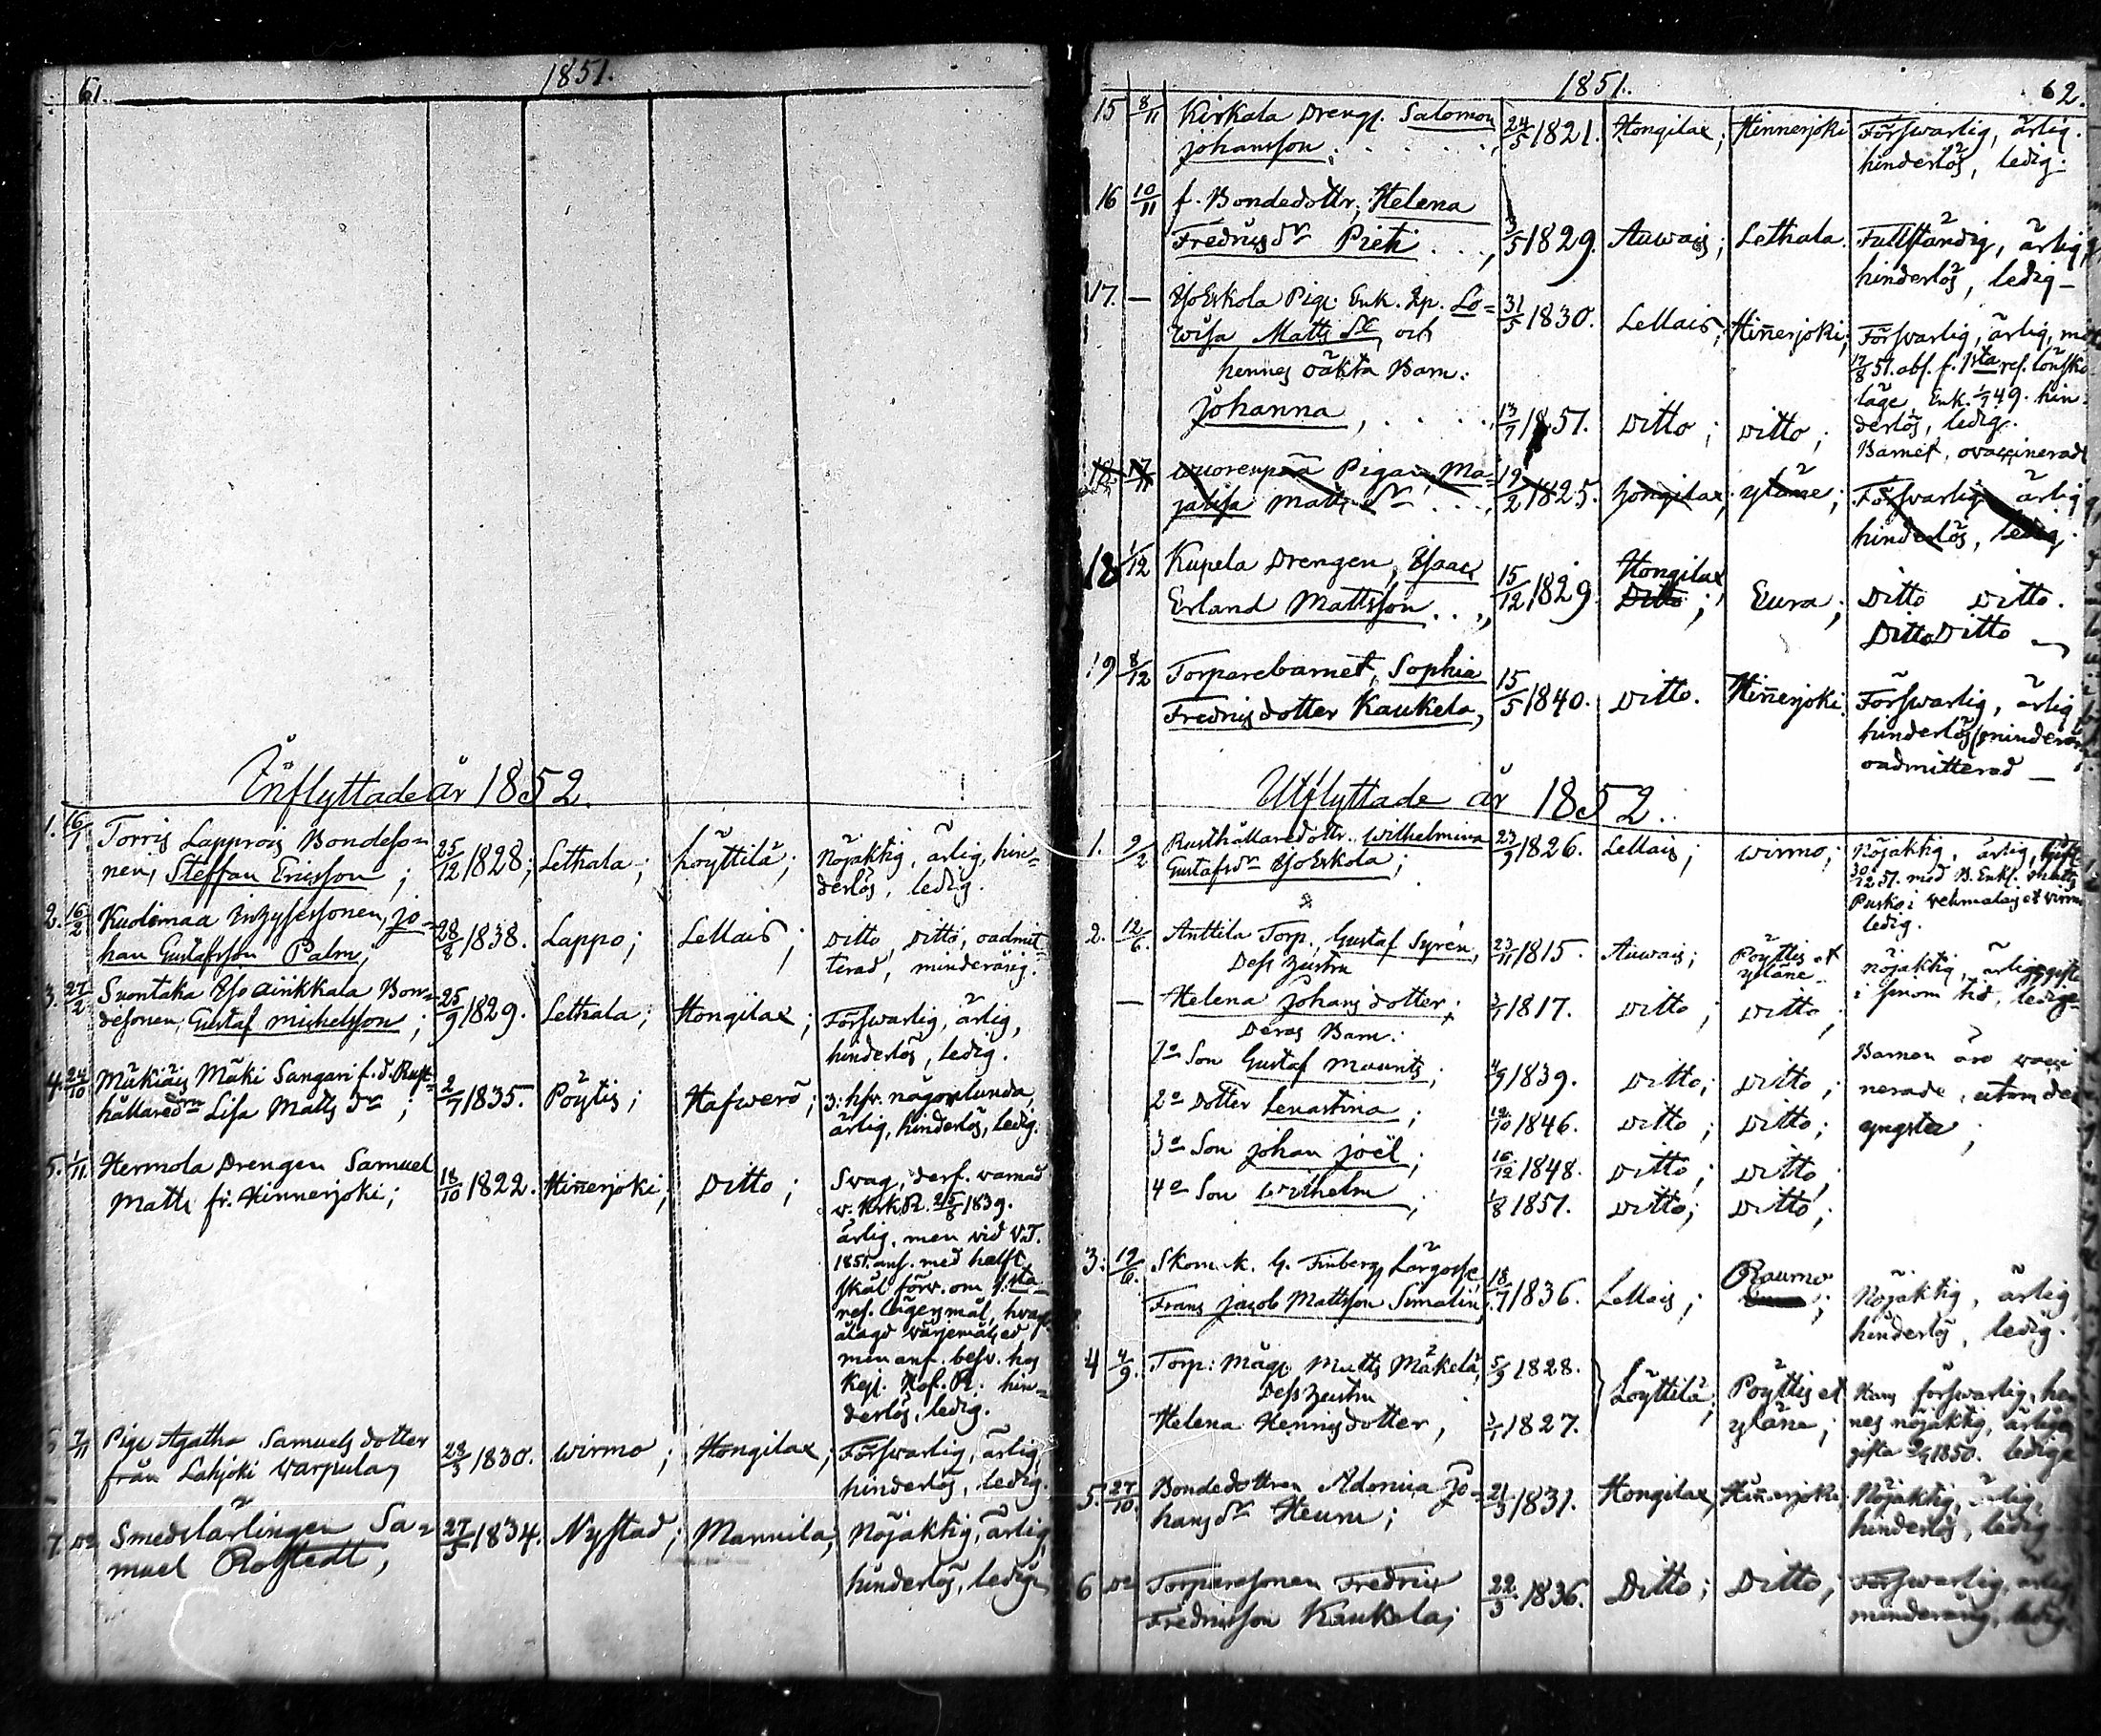 61.
1851.
Inflyttade år 1852.
1. 16/1 Torris Lapprois Bondeso=
nen, Steffan Ericsson; 25/12 1828; Lethala; Löyttilä; Nöjaktig, ärlig, hin=
derlös, ledig.
2. 16/2 Kuolimaa Inhysessonen, Jo=
han Gustafsson Palm; 28/8 1838. Lappo; Lellais; Ditto, Ditto, oadmit=
terad, minderårig.
3. 27/2 Suontaka Bon=
desonen, Gustaf Michelsson; 25/9 1829. Lethala; Hongilax; Förswarlig, ärlig,
hinderlös, ledig.
4. 24/10 Mäki Sangari f.d. Rust=
hållaredrn Lisa Matts dr; 2/7 1835. Pöytis; Hafwerö; någorlunda,
ärlig, hinderlös, ledig.
5. 1/11. Hermola Drengen Samuel
Matts fr. Hinnerjoki; 18/10 1822. Hiñerjoki; Ditto; Swag, derf. warnad
v. Krk.R. 25/8 1839.
ärlig, men vid V.T.
1851. anf. med hälft
skäl förv. om 1:sta
res. lägersmål, hvarf.
ålagd värjemåls ed,
men anf. besv. hos
Kejs. Hof.R. hin=
derlös, ledig.
6 7/11 Pig. Agatha Samuels dotter
från Lahjoki Varpula, 23/3 1830. Wirmo; Hongilax; Förswarlig, ärlig,
hinderlös, ledig.
7. Do Smedslärlingen Sa=
muel Rostedt, 27/5 1834. Nystad; Mannila; Nöjaktig, ärlig,
hinderlös, ledig
1851.
62.
15 8/11 Kirkala Dreng. Salomon
Johansson, 24/5 1821. Hongilax; Hinnerjoki Förswarlig, ärlig.
hinderlös, ledig.
16 10/11 f. Bondedottr, Helena
Fredrics dr Pieti . . , 3/5 1829. Auwais; Lethala. Fullständig, ärlig,
hinderlös, ledig
17. — Eskola Pig. Enk. Lo=
wisa Matts dr, och 31/5 1830. Lellais; Hiñerjoki; Förswarlig, ärlig,
hennes oäkta Barn: 17/8 51. abs. f. 1sta res. lönska
läge, Enk. 49. hin=
Johanna, . . . . , 13/7 1851. Ditto; Ditto; derlös, ledig.
Barnet, ovaccinerad
18. 17/11 Wuorenpää Pigan, Ma=
jalisa Matts dr . . . , 19/2 1825. Hongilax; Yläne; Förswarlig, ärlig
hinderlös, ledig.
18 1/12 Kupela Drengen, Isaac
Erland Mattsson . . , 15/12 1829. Ditto Hongilax; Eura; Ditto Ditto.
Ditto Ditto
19 8/12 Torparebarnet, Sophia
Fredrics dotter Kaukela, 15/5 1840. Ditto. Hiñerjoki. Förswarlig, ärlig
hinderlös, minderårig
oadmitterad
Utflyttade år 1852.
1. 9/2 Rusthållaredottr. Wilhelmina
Gustafs dr Eskola; 23/9 1826. Lellais; Wirmo; Nöjaktig, ärlig,
30/12 51. med B. Enkl. Matts
Pusko i Vehmalais et Wirmo
ledig.
2. 12/6. Anttila Torp. Gustaf Syrén, 23/11 1815. Auwais; Pöyttis et Yläne
Dess Hustru nöjaktig, ärlig, gift
— Helena Johans dotter; 3/1 1817. Ditto; Ditto; i sinom tid, ledige
Deras Barn:
1o Son Gustaf Maurits; 4/9 1839. Ditto; Ditto; Barnen äro vacci
2o Dotter Lenastina; 19/10 1846. Ditto; Ditto; nerade, utom den
3o Son Johan Joël; 16/12 1848. Ditto; Ditto; yngsta;
4o Son Wilhelm; 1/8 1851. Ditto; Ditto;
3. 12/6. Skom. K. G. Finberg Lärgosse
Frans Jacob Mattsson Simelin, 18/7 1836. Lellais; Raumo; Nöjaktig, ärlig,
hinderlös, ledig.
4 4/9. Torp: Måg. Matts Mäkelä, 5/9 1828.
Dess Hustru Löyttilä; Pöyttis et Yläne; Hans förswarlig, hen
Helena Henrics dotter, 3/1 1827. nes nöjaktig, ärlige
gifta 1850. ledige
5. 27/10. Bondedottren Adamina Jo=
hans dr Heurn; 21/3 1831. Hongilax; Hiñerjoki; Nöjaktig, ärlig,
hinderlös, ledig
6 Do Torparesonen Fredric
Fredricsson Kaukela; 22/3 1836. Ditto; Ditto; Förswarlig, ärlig
minderårig, ledig.